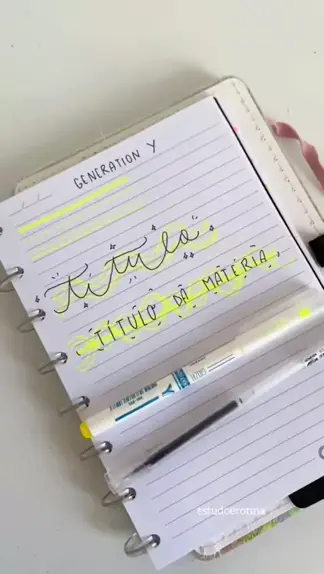 GENERATION Y
título
TÍTULO DA MATÉRIA
estudoerotina